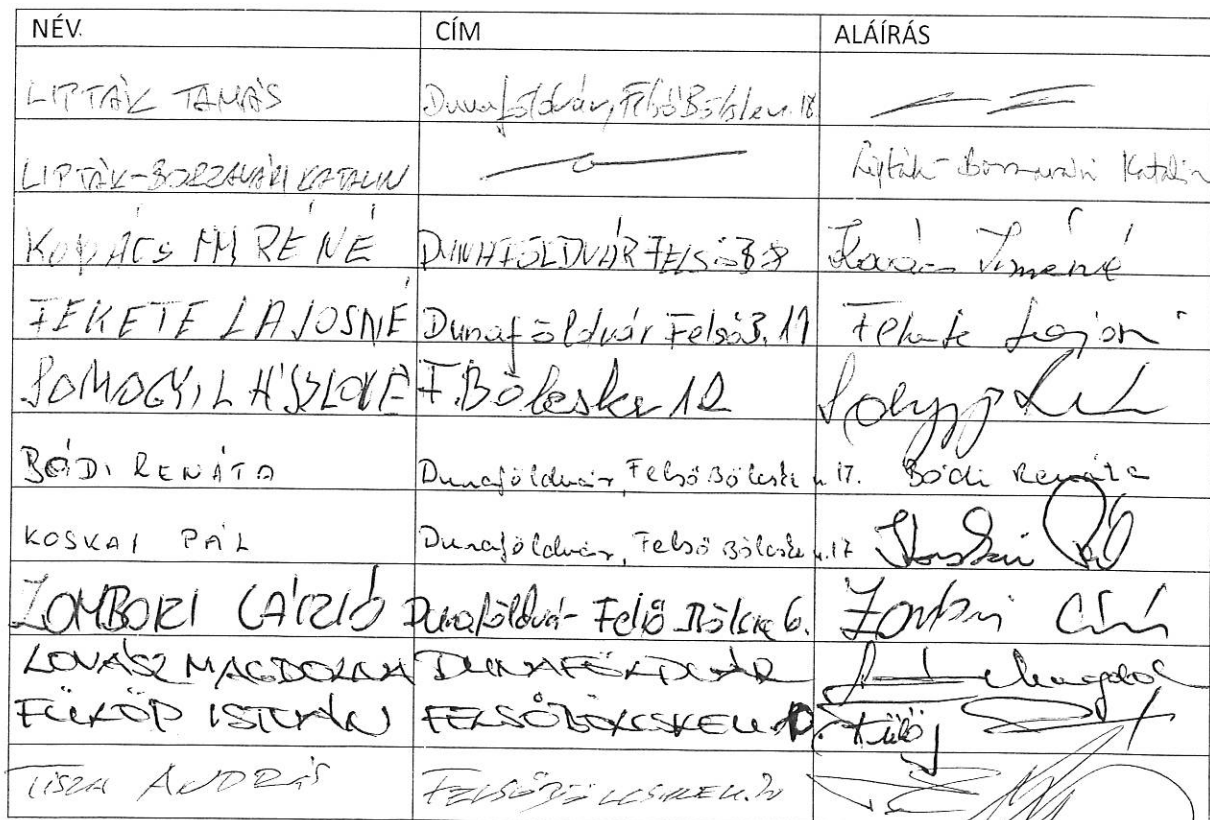 NÉV. CÍM ALÁÍRÁS
LIPTÁK TAMÁS Dunaföldvár, Felső Bölcske u. 18
LIPTÁK-BORZAVÁRI KATALIN Lipták-Borzavári Katalin
KOVÁCS IMRÉNÉ DUNAFÖLDVÁR FELSŐ B 8 Kovács Imréné
FEKETE LAJOSNÉ Dunaföldvár Felső B. 11 Fekete Lajosn
SOMOGYI LÁSZLÓNÉ F. Bölcske 12
BÓDI RENÁTA Dunaföldvár, Felső Bölcske u. 17. Bódi Renáta
KOSKAI PÁL Dunaföldvár, Felső Bölcske u. 17 Koskai Pál
ZOMBORI LÁSZLÓ Dunaföldvár Felső Bölcske 6. Zombori
LOVÁSZ MAGDOLNA DUNAFÖLDVÁR Magdol
FÜLÖP ISTVÁN FELSŐBÖLCSKE U. 10. Fülöp
TISZA ANDRÁS FELSŐBÖLCSKE U.